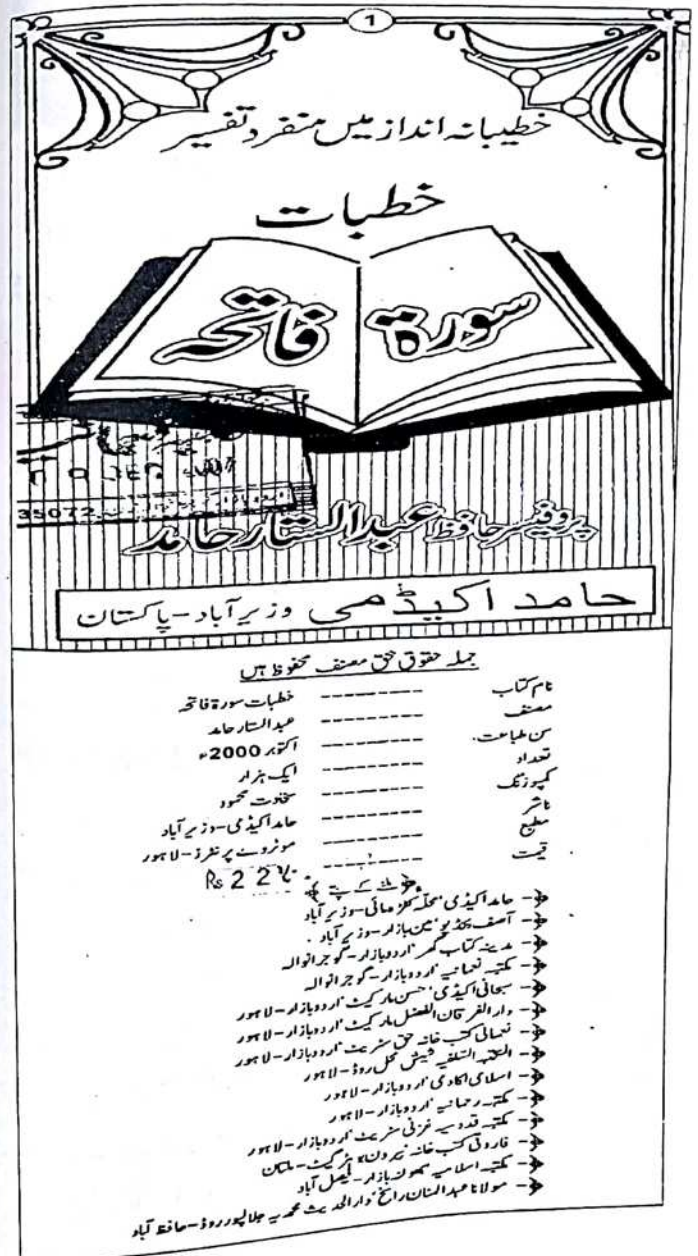 1
خطیبانہ انداز میں منفرد تفسیر
خطبات
سورۃ فاتحہ
35072
پروفیسر حافظ عبدالستار حامد
حامد اکیڈمی وزیر آباد - پاکستان
جملہ حقوق بحق مصنف محفوظ ہیں
نام کتاب ---------- خطبات سورۃ فاتحہ
مصنف ---------- عبدالستار حامد
سن طباعت ---------- اکتوبر 2000ء
تعداد ---------- ایک ہزار
کمپوزنگ ---------- سخاوت محمود
ناشر ---------- حامد اکیڈمی - وزیر آباد
مطبع ---------- موٹروے پرنٹرز - لاہور
قیمت ---------- Rs 22
ملنے کے پتے
حامد اکیڈمی محلہ وزیر آباد
آصف بکڈپو مین بازار - وزیر آباد
مدینہ کتاب گھر اردو بازار - گوجرانوالہ
مکتبہ نعمانیہ اردو بازار - گوجرانوالہ
سبحانی اکیڈمی حسن مارکیٹ اردو بازار - لاہور
دار الفرقان الفضل مارکیٹ اردو بازار - لاہور
نعمانی کتب خانہ حق سٹریٹ اردو بازار - لاہور
المکتبہ السلفیہ شیش محل روڈ - لاہور
اسلامی اکادمی اردو بازار - لاہور
مکتبہ رحمانیہ اردو بازار - لاہور
مکتبہ قدوسیہ غزنی سٹریٹ اردو بازار - لاہور
فاروقی کتب خانہ بیرون بوہڑ گیٹ - ملتان
مکتبہ اسلامیہ بھوانہ بازار - فیصل آباد
مولانا عبدالمنان راسخ دار الحدیث محمدیہ جلالپور روڈ - حافظ آباد